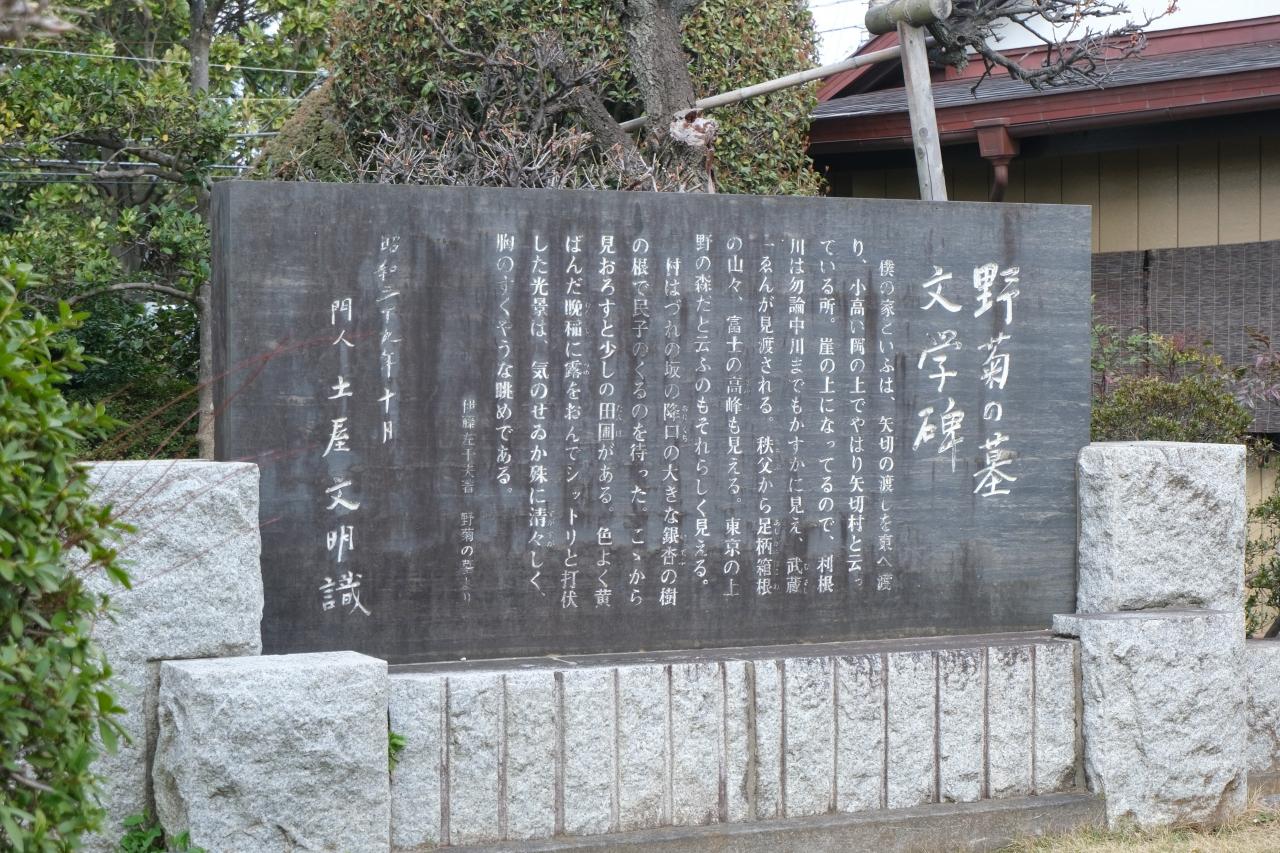 野菊の墓
文学碑
僕の家といふは、矢切の渡しを東へ渡
り、小高い岡の上でやはり矢切村と云っ
ている所。崖の上になってるので、利根
川は勿論中川までもかすかに見え、武蔵
一ゑんが見渡される。秩父から足柄箱根
の山々、富士の高峰も見える。東京の上
野の森だと云ふのもそれらしく見える。
村はづれの坂の降口の大きな銀杏の樹
の根で民子のくるのを待った。こゝから
見おろすと少しの田圃がある。色よく黄
ばんだ晩稲に露をおんでシットリと打伏
した光景は、気のせゐか殊に清々しく、
胸のすくやうな眺めである。
伊藤左千夫著 野菊の墓より
昭和三十九年十月
門人 土屋文明識